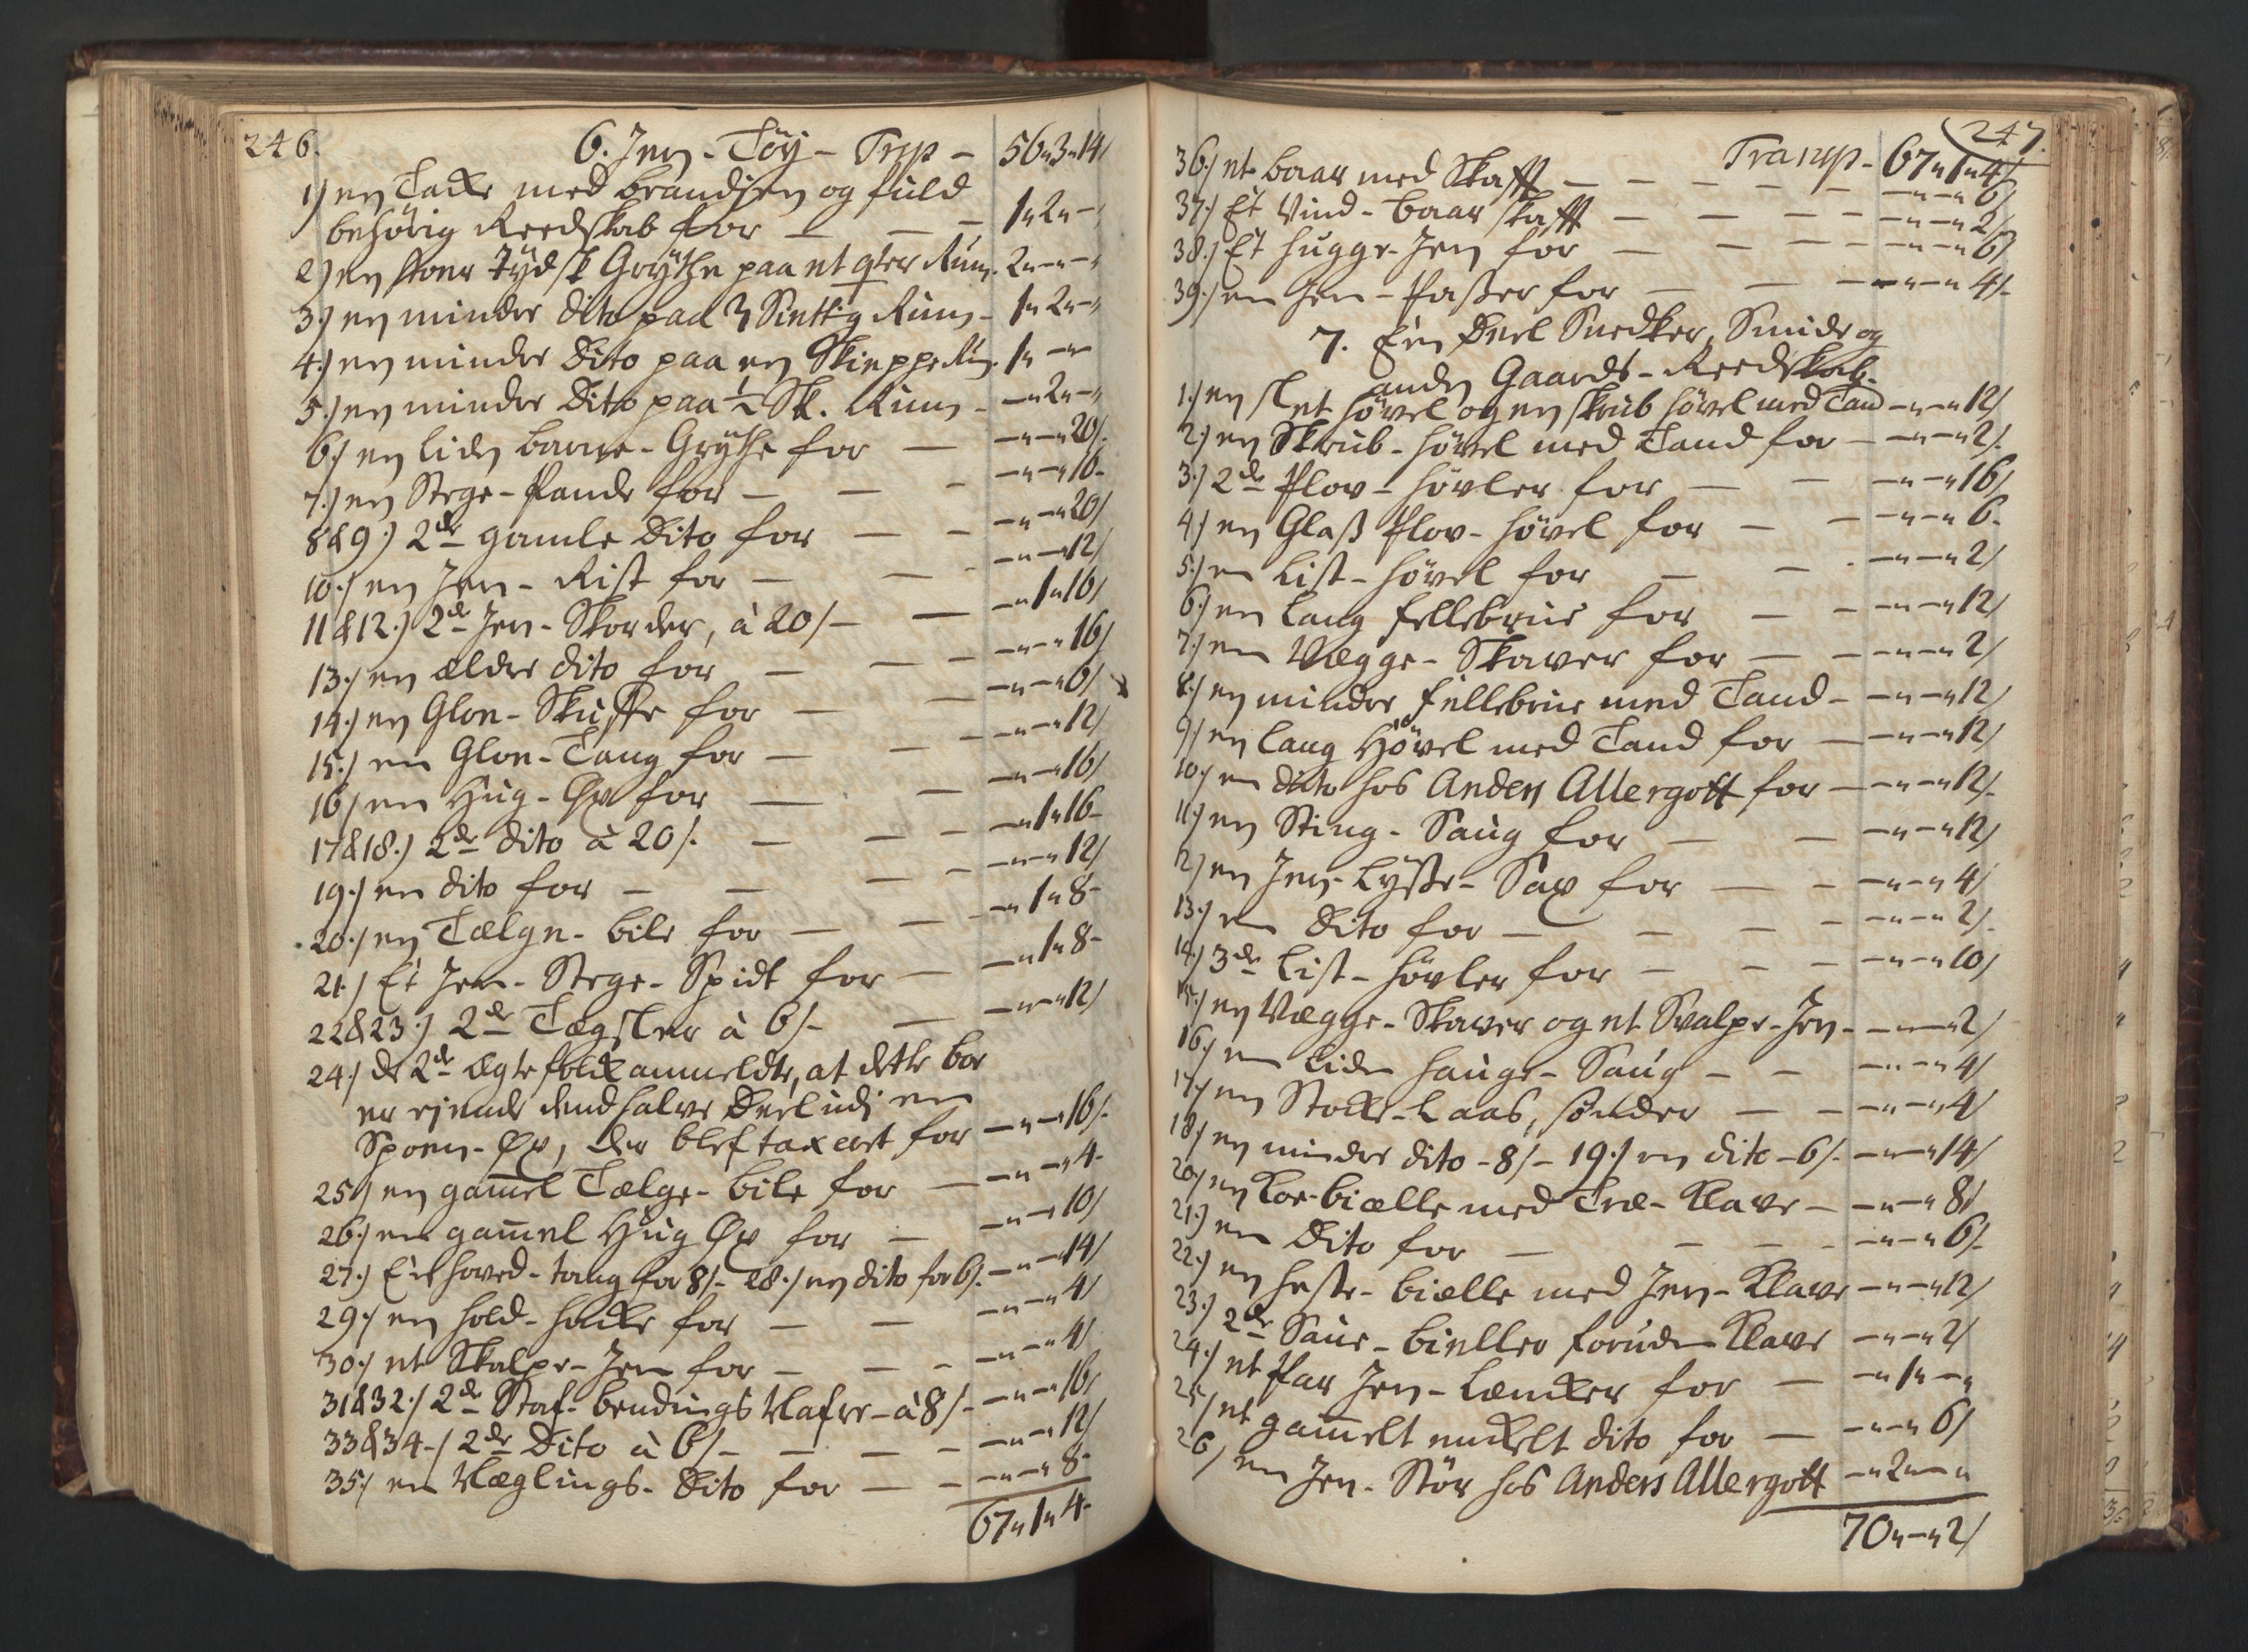 246. 6. Jern-Tøy - Trsp - 56"3"14/
1.) en Kacke med brandjern og fuld
behørig Reedskab for — — — 1"2"—"
2.) en stoer Tydsk Grythe paa et qter Rum. 2"—"—"
3.) en minder dito paa 3 Sietting Rum - 1"2"—"
4.) en minder Dito paa en Skieppe Rum. 1"—"—
5.) en minder Dito paa ½ Sk. Rum - —"2"—"
6.) en liden baare-Grythe for — —"—"20/.
7.) en Stege-Pande for — — - —"—"16-
8&9.) 2de gamle Dito for — - —"—"20/
10.) en Jern-Rist for — — - —"—"12/
11&12.) 2de Jern-Skorder, à 20/- — —"1"16/
13.) en ælder dito for — — - —"—"16/
14.) en Gloe-Skuffe for — — —"—"6/
15.) en Gloe-Tang for — — - —"—"12/
16/ en Hug-Øx for — — —"—"16/
17&18.) 2de dito à 20/. — — - —"1"16-
19.) en dito for - — — - —"—"12/
20.) en Tælgn-bile for — — - —"1"8-
21.) Et Jern-Stege-Spidt for — —"1"8-
22&23.) 2de Tægsler à 6/- — —"—"12/
24.) de 2de Ægtefolck anmeldte, at dette boe
er ejende dend halve Deel udj en
Spoen-Øx, der blef taxeret for —"—"16/-
25.) en gam̄el Tælge-bile for — —"—"4-
26.) en gam̄el Hug Øx for — —"—"10/
27.) Eet hoved-tang for 8/- 28.) en dito for 6/. —"—"14/
29.) en hold-hacke for — — —"—"4/
30.) et Skalpe-Jern for — — - —"—"4/
31&32.) 2de Staf-bendings Nafre - à 8/- —"—"16/
33&34-/ 2de Dito à 6/- — — - —"—"12/
35/ en Næglings-Dito for — - —"—"8-
67"1"4-
247.
Transp- 67"1"4/
36.) et baar med Skafft — — — — —"—"6/
37.) Et Vind-baar skafft — — — - —"—"2/
38.) Et hugge-Jern for — — — - —"—"6/
39.) en Jern-Passer for — — —"—"4/-
7. Een Deel Snedker, Smide og
anden Gaards-Reedskab.
1.) en slet høvel og en skrub høvel med Tand —"—"12/
2.) en Skrub-høvel med Tand for — —"—"2/.
3.) 2de Plov-høvler for — — —"—"16/
4.) en Glass Plov-høvel for — — —"—"6.
5.) en List-høvel for — — . —"—"2/
6.) en lang fellebrue for — — —"—"12/
7.) en Vægge-Skaver for — — —"—"2/
8.) en minder fellebrue med Tand - —"—"12/
9.) en lang Høvel med Tand for — —"—"12/
10.) en dito hos Anders Allergott for — —"—"12/-
11.) en Sting-Saug for — — —"—"12/
12) en Jern-Lysse-Sax for — - —"—"4/
13.) en Dito for — — — - —"—"2/.
14.) 3de List-høvler for — — - —"—"10/
15.) en Vægge-Skaver og et Svalpe-Jern - —"—"2/
16.) en liden hauge-Saug - — —"—"4/
17.) en Stocke-Laas, sønder — - —"—"4/
18/ en minder dito - 8/- 19.) en dito - 6/- —"—"14/
20/ en Koe-biælle med Træ-Klave - —"—"8/
21.) en Dito for — — — - —"—"6/-
22.) en heste-biælle med Jern-Klave —"—"12/
23.) 2de Saue-bieller foruden Klave —"—"2/
24.) et Par Jern-Læncker for — —"1"—"
25/ et gam̄elt enckelt dito for — —"—"6/
26/ en Jern-Stør hos Anders Allergott —"2"—"
70"—"2/